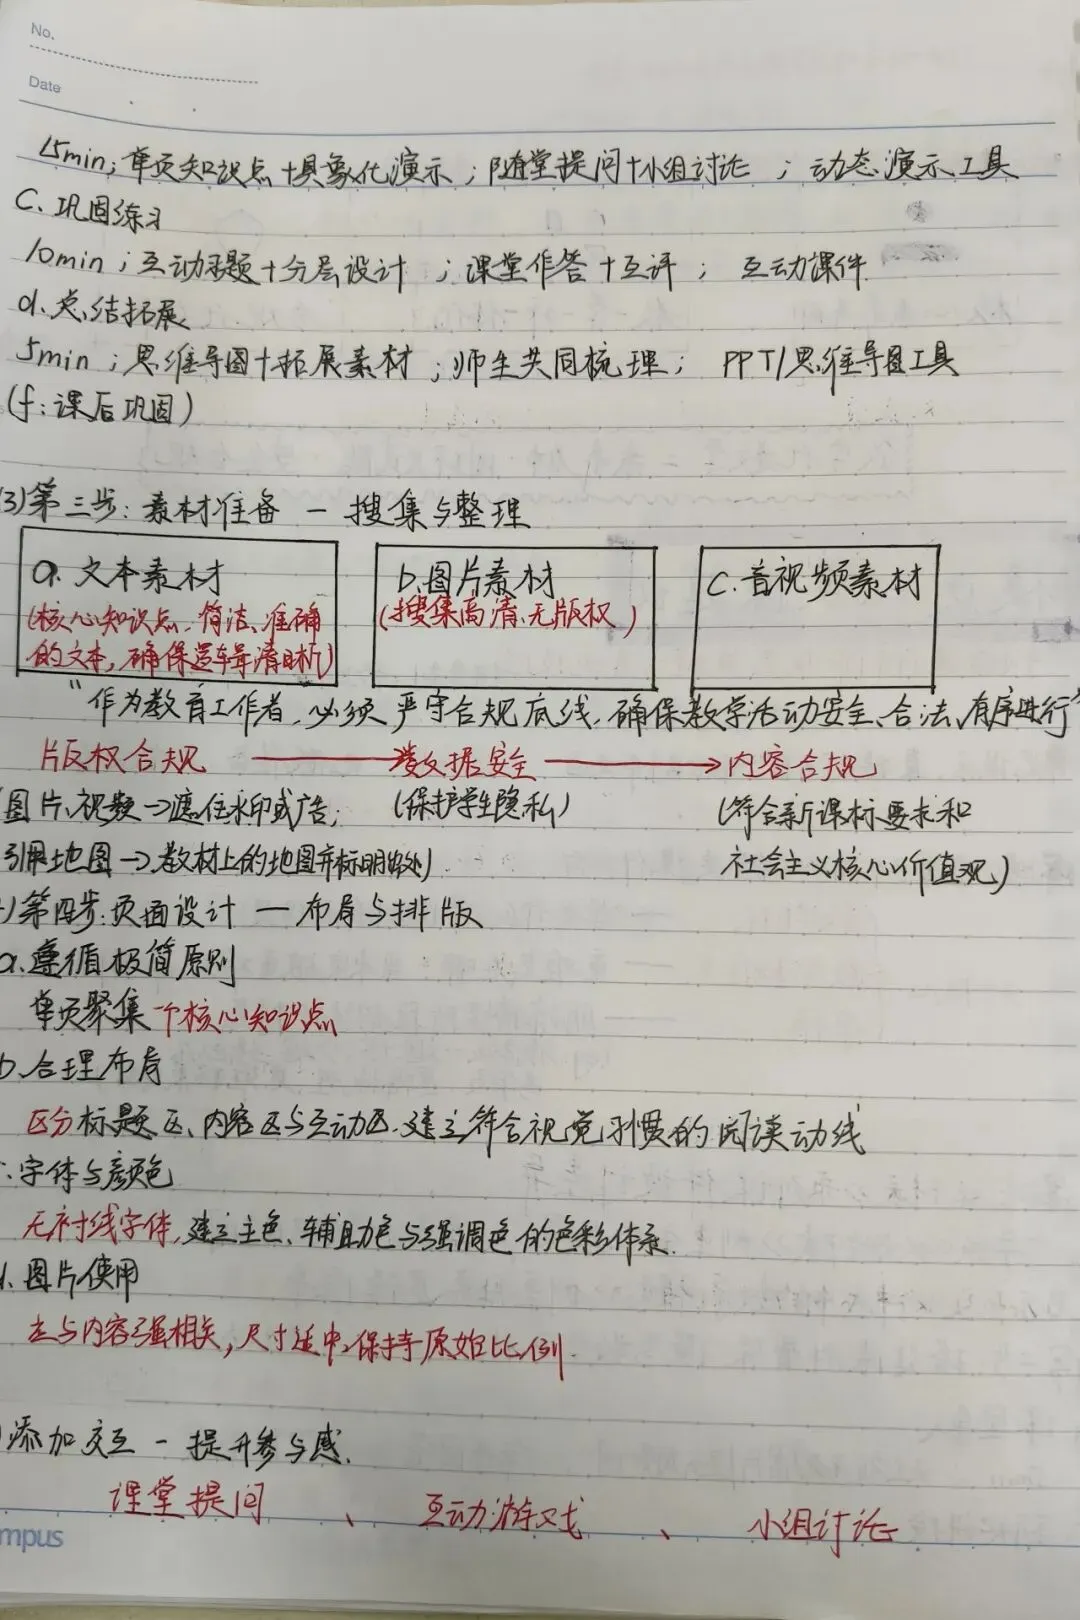 No.
Date
15min；单页知识点+具象化演示；随堂提问+小组讨论；动态演示工具
C. 巩固练习
10min；互动习题+分层设计；课堂作答+互评；互动课件
d. 总结拓展
5min；思维导图+拓展素材；师生共同梳理；PPT/思维导图工具
(f：课后巩固)
(3)第三步：素材准备 — 搜集与整理
a. 文本素材
(核心知识点、简洁、准确
的文本，确保逻辑清晰)
b. 图片素材
(搜集高清、无版权)
C. 音视频素材
“作为教育工作者，必须严守合规底线，确保教学活动安全、合法、有序进行”
版权合规 → 数据安全 → 内容合规
(图片、视频→遮住水印或广告；
引用地图→教材上的地图并标明出处)
(保护学生隐私)
(符合新课标要求和
社会主义核心价值观)
)第四步：页面设计 — 布局与排版
a. 遵循极简原则
单页聚集一个核心知识点
b. 合理布局
区分标题区、内容区与互动区，建立符合视觉习惯的阅读动线
. 字体与颜色
无衬线字体，建立主色、辅助色与强调色的色彩体系.
d. 图片使用
与内容强相关，尺寸适中，保持原始比例.
)添加交互 — 提升参与感.
课堂提问、互动游戏、小组讨论
mpus